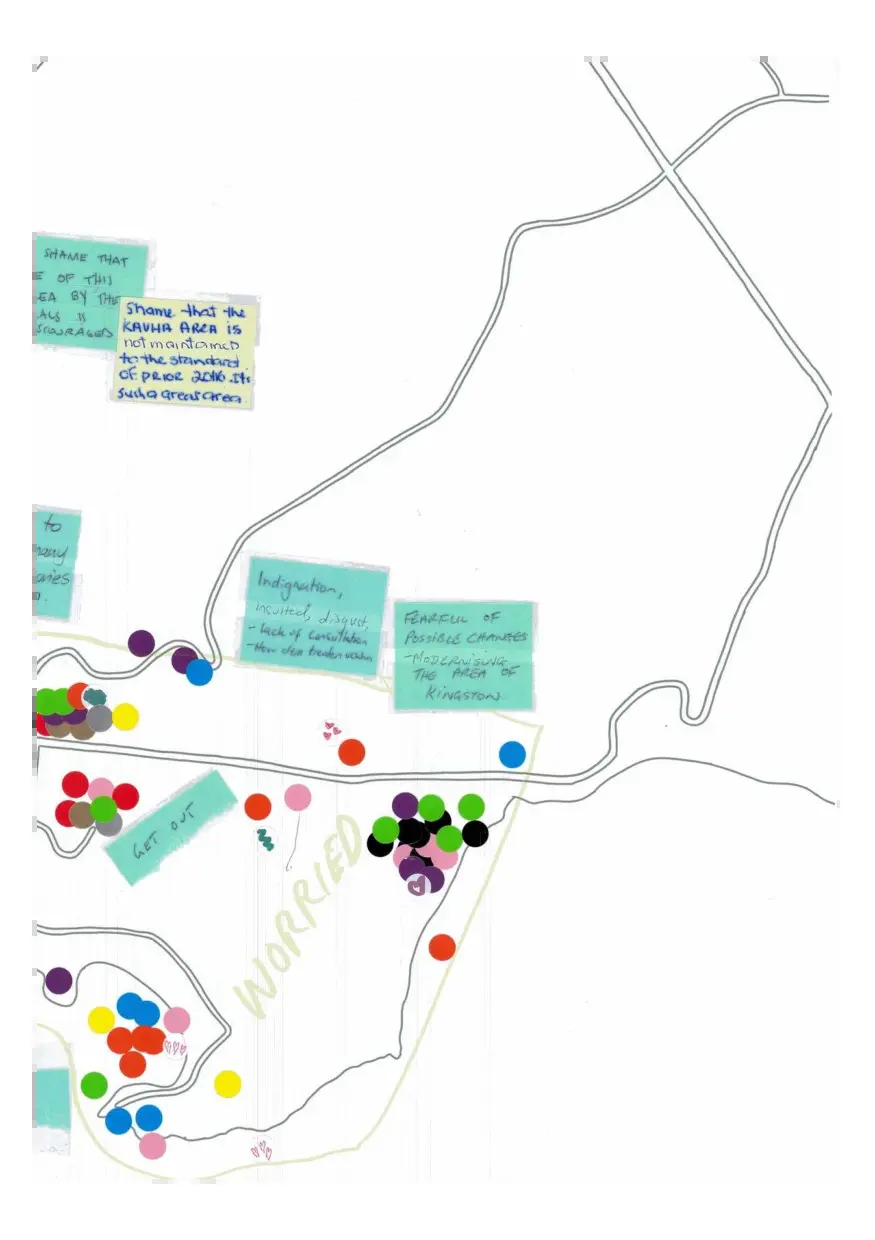 SHAME THAT
OF THIS
EA BY THE
ALS IS
SCOURAGED
Shame that the
KAVHA AREA is
not maintained
to the standard
OF PRIOR 2016. It's
such a great area.
to
many
ories
Indignation,
insulted, disgust,
- Lack of Consultation
- How dem
FEARFUL OF
POSSIBLE CHANGES
- MODERNISING
THE AREA OF
KINGSTON
GET OUT
WORRIED